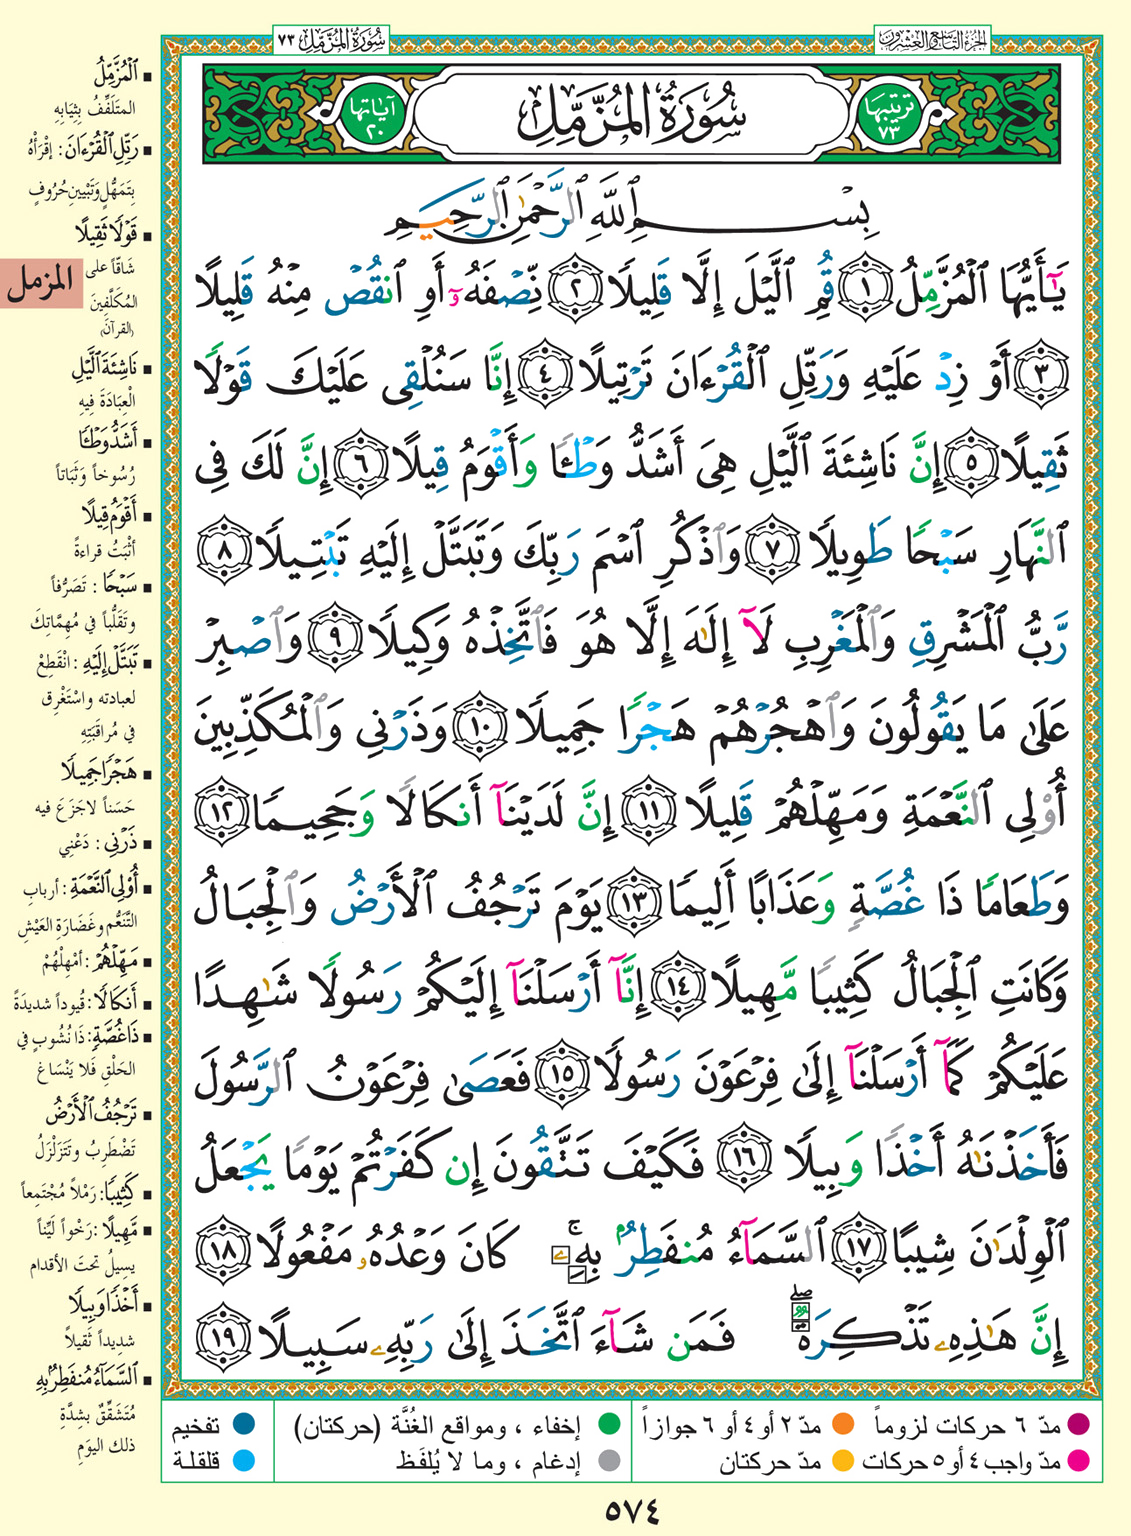 الجزء التاسع والعشرون
سورة المزمل ٧٣
ترتيبها ٧٣
سُورَةُ المُزَّمِّلِ
آياتها ٢٠
بِسْمِ ٱللَّهِ ٱلرَّحْمَٰنِ ٱلرَّحِيمِ
يَٰٓأَيُّهَا ٱلْمُزَّمِّلُ ١ قُمِ ٱلَّيْلَ إِلَّا قَلِيلًا ٢ نِّصْفَهُۥٓ أَوِ ٱنقُصْ مِنْهُ قَلِيلًا
٣ أَوْ زِدْ عَلَيْهِ وَرَتِّلِ ٱلْقُرْءَانَ تَرْتِيلًا ٤ إِنَّا سَنُلْقِى عَلَيْكَ قَوْلًا
ثَقِيلًا ٥ إِنَّ نَاشِئَةَ ٱلَّيْلِ هِىَ أَشَدُّ وَطْـًٔا وَأَقْوَمُ قِيلًا ٦ إِنَّ لَكَ فِى
ٱلنَّهَارِ سَبْحًا طَوِيلًا ٧ وَٱذْكُرِ ٱسْمَ رَبِّكَ وَتَبَتَّلْ إِلَيْهِ تَبْتِيلًا ٨
رَّبُّ ٱلْمَشْرِقِ وَٱلْمَغْرِبِ لَآ إِلَٰهَ إِلَّا هُوَ فَٱتَّخِذْهُ وَكِيلًا ٩ وَٱصْبِرْ
عَلَىٰ مَا يَقُولُونَ وَٱهْجُرْهُمْ هَجْرًا جَمِيلًا ١٠ وَذَرْنِى وَٱلْمُكَذِّبِينَ
أُو۟لِى ٱلنَّعْمَةِ وَمَهِّلْهُمْ قَلِيلًا ١١ إِنَّ لَدَيْنَآ أَنكَالًا وَجَحِيمًا ١٢
وَطَعَامًا ذَا غُصَّةٍ وَعَذَابًا أَلِيمًا ١٣ يَوْمَ تَرْجُفُ ٱلْأَرْضُ وَٱلْجِبَالُ
وَكَانَتِ ٱلْجِبَالُ كَثِيبًا مَّهِيلًا ١٤ إِنَّآ أَرْسَلْنَآ إِلَيْكُمْ رَسُولًا شَٰهِدًا
عَلَيْكُمْ كَمَآ أَرْسَلْنَآ إِلَىٰ فِرْعَوْنَ رَسُولًا ١٥ فَعَصَىٰ فِرْعَوْنُ ٱلرَّسُولَ
فَأَخَذْنَٰهُ أَخْذًا وَبِيلًا ١٦ فَكَيْفَ تَتَّقُونَ إِن كَفَرْتُمْ يَوْمًا يَجْعَلُ
ٱلْوِلْدَٰنَ شِيبًا ١٧ ٱلسَّمَآءُ مُنفَطِرٌۢ بِهِۦ ۚ كَانَ وَعْدُهُۥ مَفْعُولًا ١٨
إِنَّ هَٰذِهِۦ تَذْكِرَةٌ ۖ فَمَن شَآءَ ٱتَّخَذَ إِلَىٰ رَبِّهِۦ سَبِيلًا ١٩
ٱلْمُزَّمِّلُ
المتَلَفِّفُ بِثِيَابِهِ
رَتِّلِ ٱلْقُرْءَانَ: إقْرَأْهُ
بِتَمَهُّلٍ وَتَبْيِينِ حُرُوفٍ
قَوْلًا ثَقِيلًا
شَاقّاً على
المُكَلَّفِينَ
(القرآن)
المزمل
نَاشِئَةَ ٱلَّيْلِ
الْعِبَادَةَ فِيهِ
أَشَدُّ وَطْـًٔا
رُسُوخاً وَثَبَاتاً
أَقْوَمُ قِيلًا
أثْبَتُ قراءةً
سَبْحًا : تَصَرُّفاً
وتَقَلُّباً في مُهِمَّاتِكَ
تَبَتَّلْ إِلَيْهِ : انْقَطِعْ
لعبادته واسْتَغْرِق
في مُراقَبَتِهِ
هَجْرًا جَمِيلًا
حَسَناً لا جَزَعَ فيه
ذَرْنِى : دَعْنِي
أُو۟لِى ٱلنَّعْمَةِ : أرباب
التَّنَعُّم وغَضَارَةِ العَيْشِ
مَهِّلْهُمْ : أمْهِلْهُمْ
أَنكَالًا : قُيوداً شديدَةً
ذَا غُصَّةٍ : ذَا نُشُوبٍ في
الحَلْقِ فَلا يَنْسَاغ
تَرْجُفُ ٱلْأَرْضُ
تَضْطَرِبُ وتَتَزَلْزَلُ
كَثِيبًا : رَمْلاً مُجْتَمِعاً
مَّهِيلًا : رَخْواً لَيِّناً
يسيلُ تحتَ الأقدام
أَخْذًا وَبِيلًا
شديداً ثَقيلاً
ٱلسَّمَآءُ مُنفَطِرٌۢ بِهِ
مُتَشَقِّقٌ بِشِدَّةِ
ذلك اليومِ
مدّ ٦ حركات لزوماً مدّ ٢ أو ٤ أو ٦ جوازاً إخفاء ، ومواقع الغُنَّة (حركتان) تفخيم
مدّ واجب ٤ أو ٥ حركات مدّ حركتان إدغام ، وما لا يُلفَظ قلقلة
٥٧٤